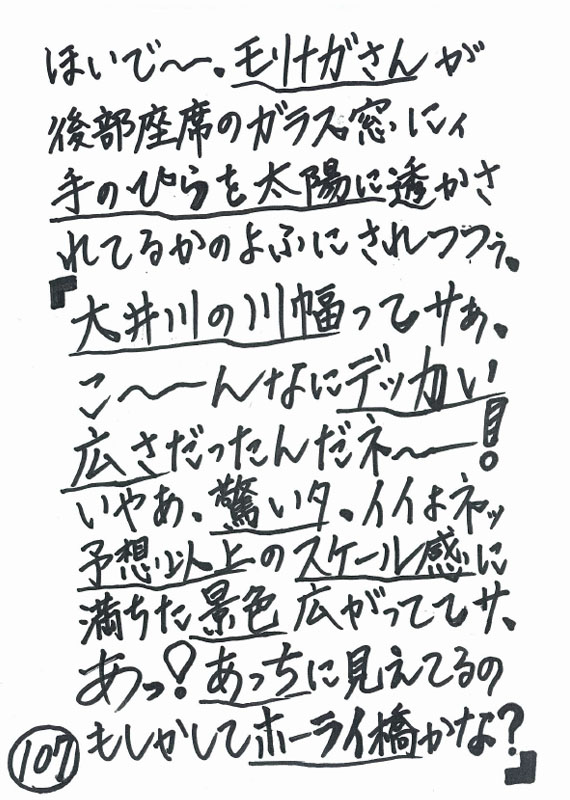 ほいで〜〜。モリナガさんが
後部座席のガラス窓にィ
手のひらを太陽に透かさ
れてるかのよふにされつつぅ。
『大井川の川幅ってサぁ、
こ〜〜んなにデッカい
広さだったんだネ〜〜!
いやぁ、驚いタ。イイよネッ
予想以上のスケール感に
満ちた景色広がっててサ、
あっ!あっちに見えてるの
もしかしてホーライ橋かな?』
107